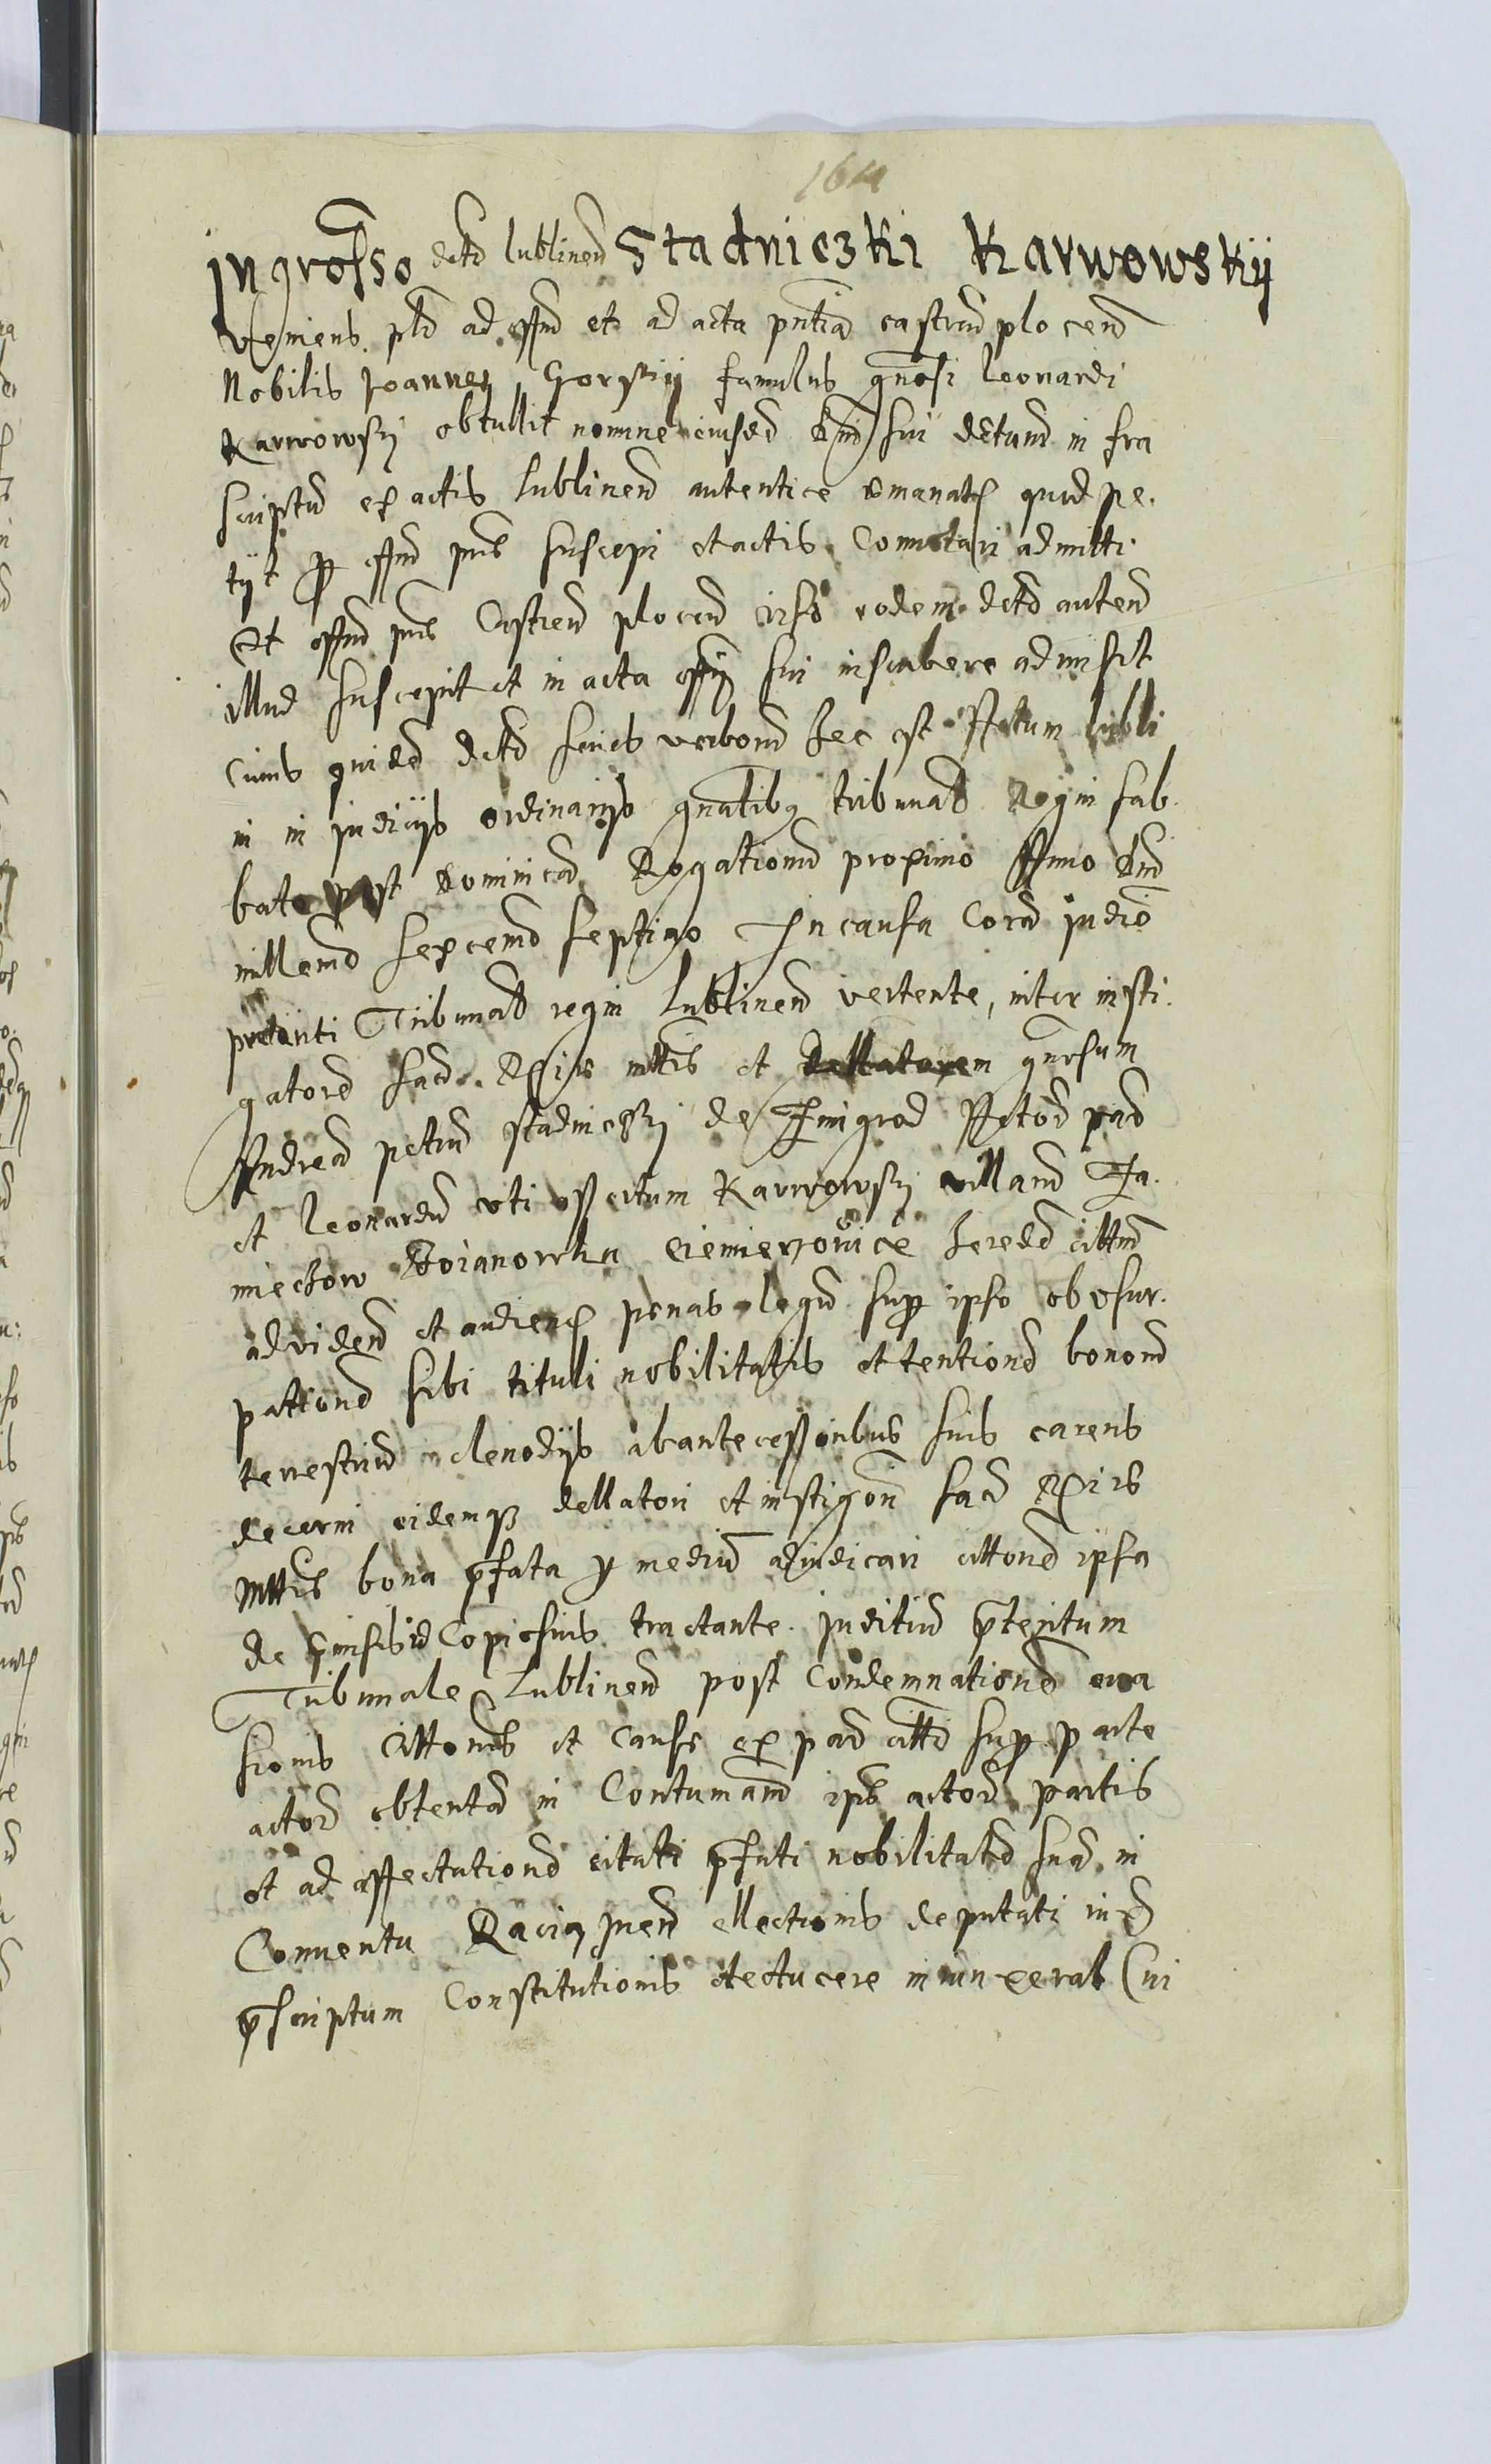 1611
Ingrosso dctd lublinen Stadniczki Karwowskÿ
Veniens pld ad offm et ad acta pntia castren plocen
Nobilis Joannes Gorskÿ famulus gnosi Leonardi
Karwowsky obtullit nomine eiusd Dnj sui dctum in fra
scriptu ex actis Lublinen autentice emanat quod pe.
tÿt p offm pns suscepi et actis Connotari admitti
Et offm pns Castren plocen viso eodem dcto auten
illud suscepit et in acta offÿ sui inscribere admisit
Cuius quid dcti series verborum hec est Actum lubli
ni in judicÿs ordinarÿs gnalibq tribunal Regni sab.
bato post dominicã Rogationũ proximo Anno Dni
millemo sexcemo septimo In causa Corã judio
Tribunal regni Lublinen vertente, inter insti.
gatorẽ Sac. Rgie mttis et Dellatorem gnosum
Andreã petrũ stadnicky de Zmigrod Actorẽ par
et Leonardũ uti assertum Karwowsky villarum Ja.
miechow Boianowka Ciemierzowice heredẽ cittum
ad viden et audien penas legũ sup ipso ob usur.
pationẽ sibi tituli nobilitatis et tentionẽ bonorum
terrestriũ clenodÿs ab antecessoribus suis carens
decerni eidemq dellatori et instigori Sac Rgie
Mttis bona pfata p mediũ adiudicari cittone ipsa
de pmissis id Copiosius tractante. juditiũ ptentum
Tribunale Lublinen post Condemnationẽ eua
sionis Cittonis et Cause ex par citti sup parte
actorẽ obtentã in Contumam ipÿ actorẽ partis
et ad affectationẽ citati pfati nobilitatẽ suã in
Conuentu Raciązen ellectionis deputati in
pscriptum Constitutionis inunxerat Cui